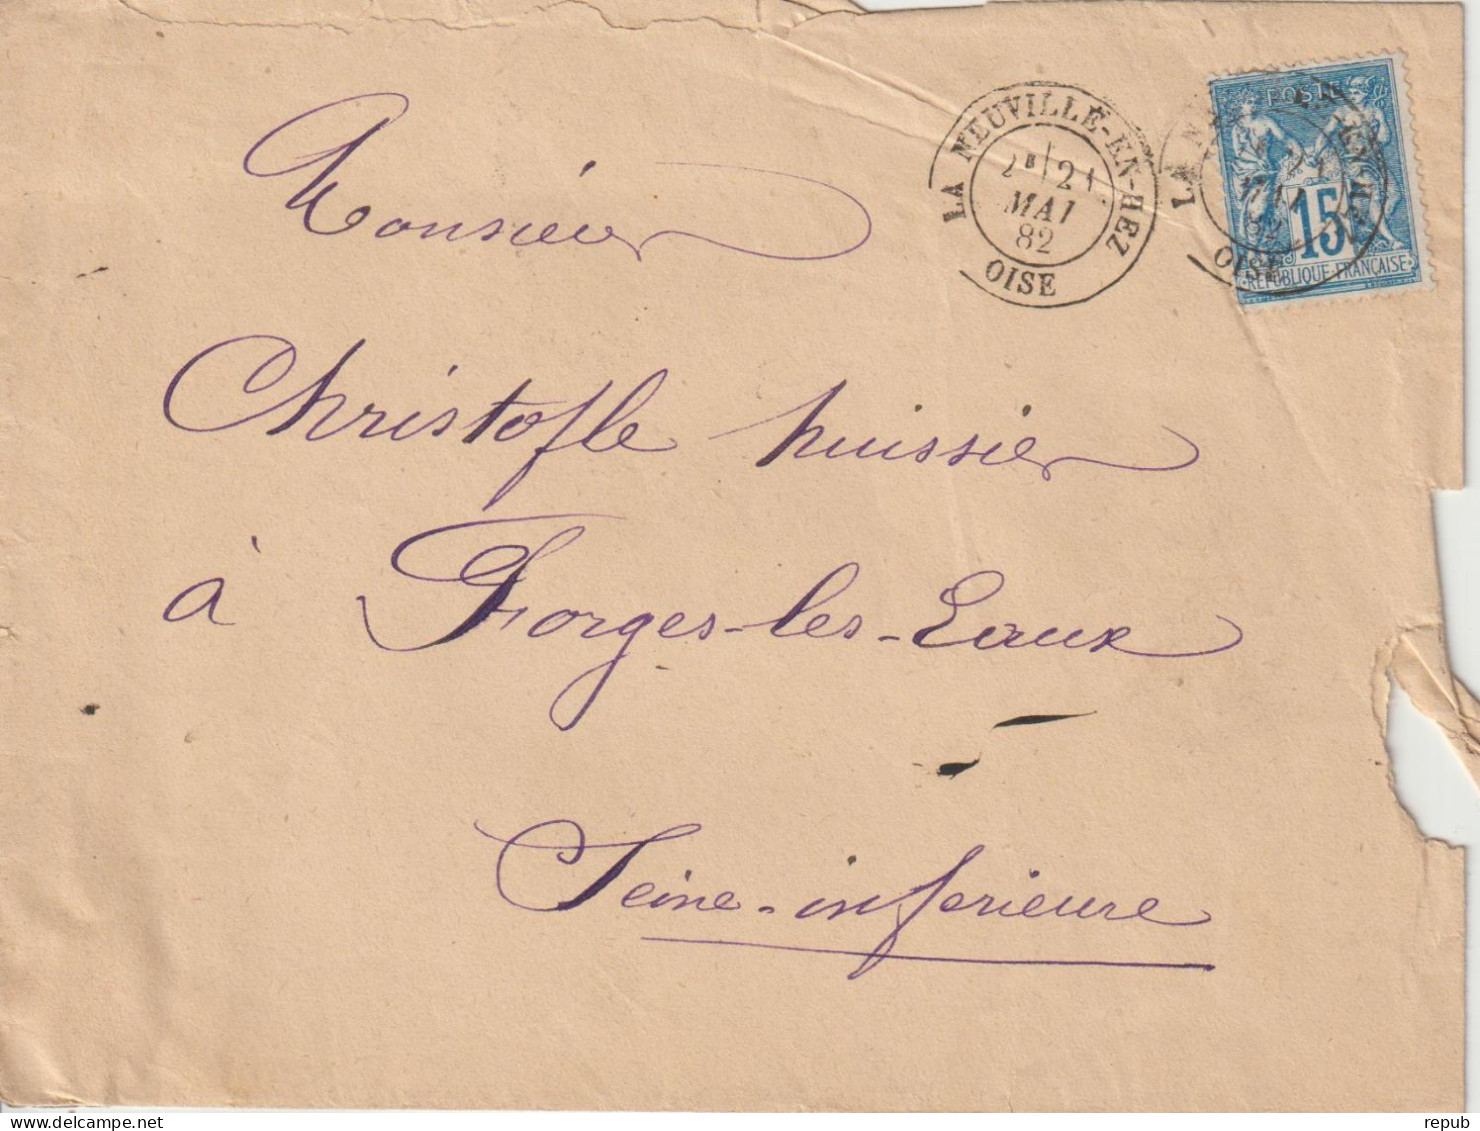 LA NEUVILLE-EN-HEZ
2E 21
MAI
82
OISE
POSTE
15
REPUBLIQUE FRANÇAISE
LA N
EN-HEZ
21
MAI
82
OISE
Monsieur
Christofle huissier
à Forges-les-Eaux
Seine-inferieure
delcampe.net
repub